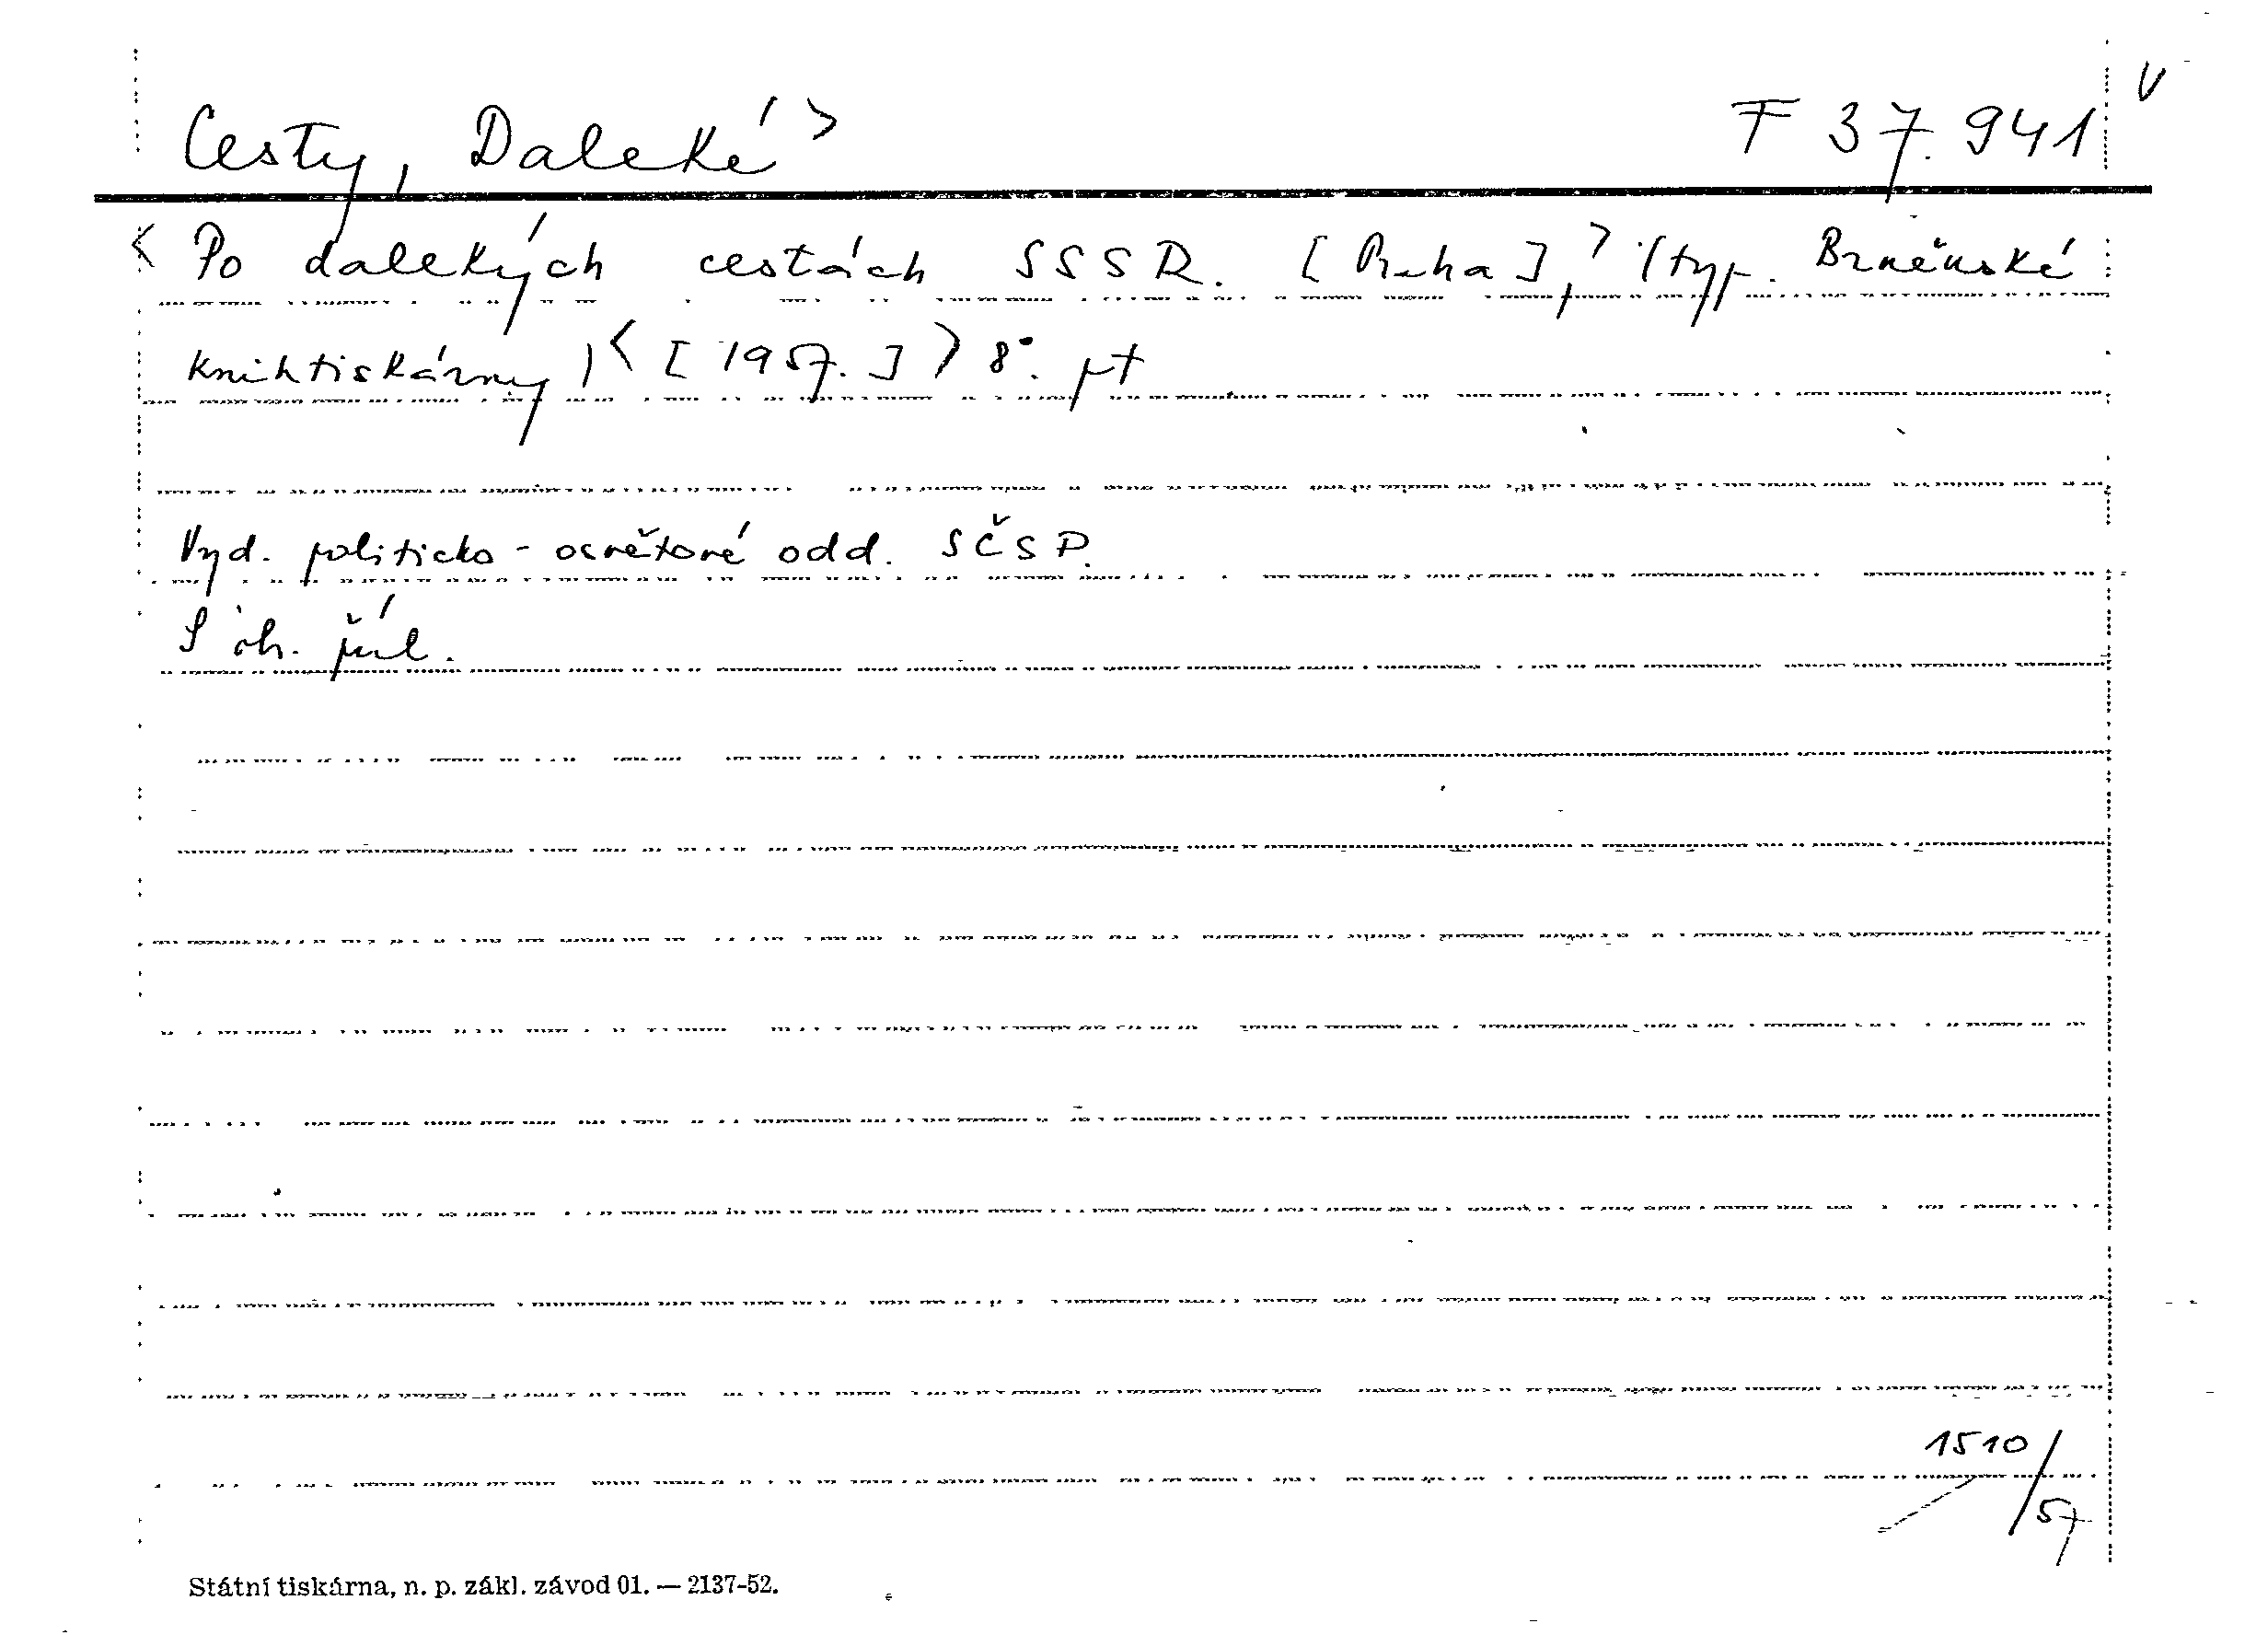 Cesty, Daleké > F 37.941 V
< Po dalekých cestách SSSR. [Praha],> (typ. Brněnské
knihtiskárny)< [1957.] > 8°. pt
Vyd. politicko-osvětové odd. SČSP.
S obr. příl.
1510/57
Státní tiskárna, n. p. zákl. závod 01. — 2137-52.